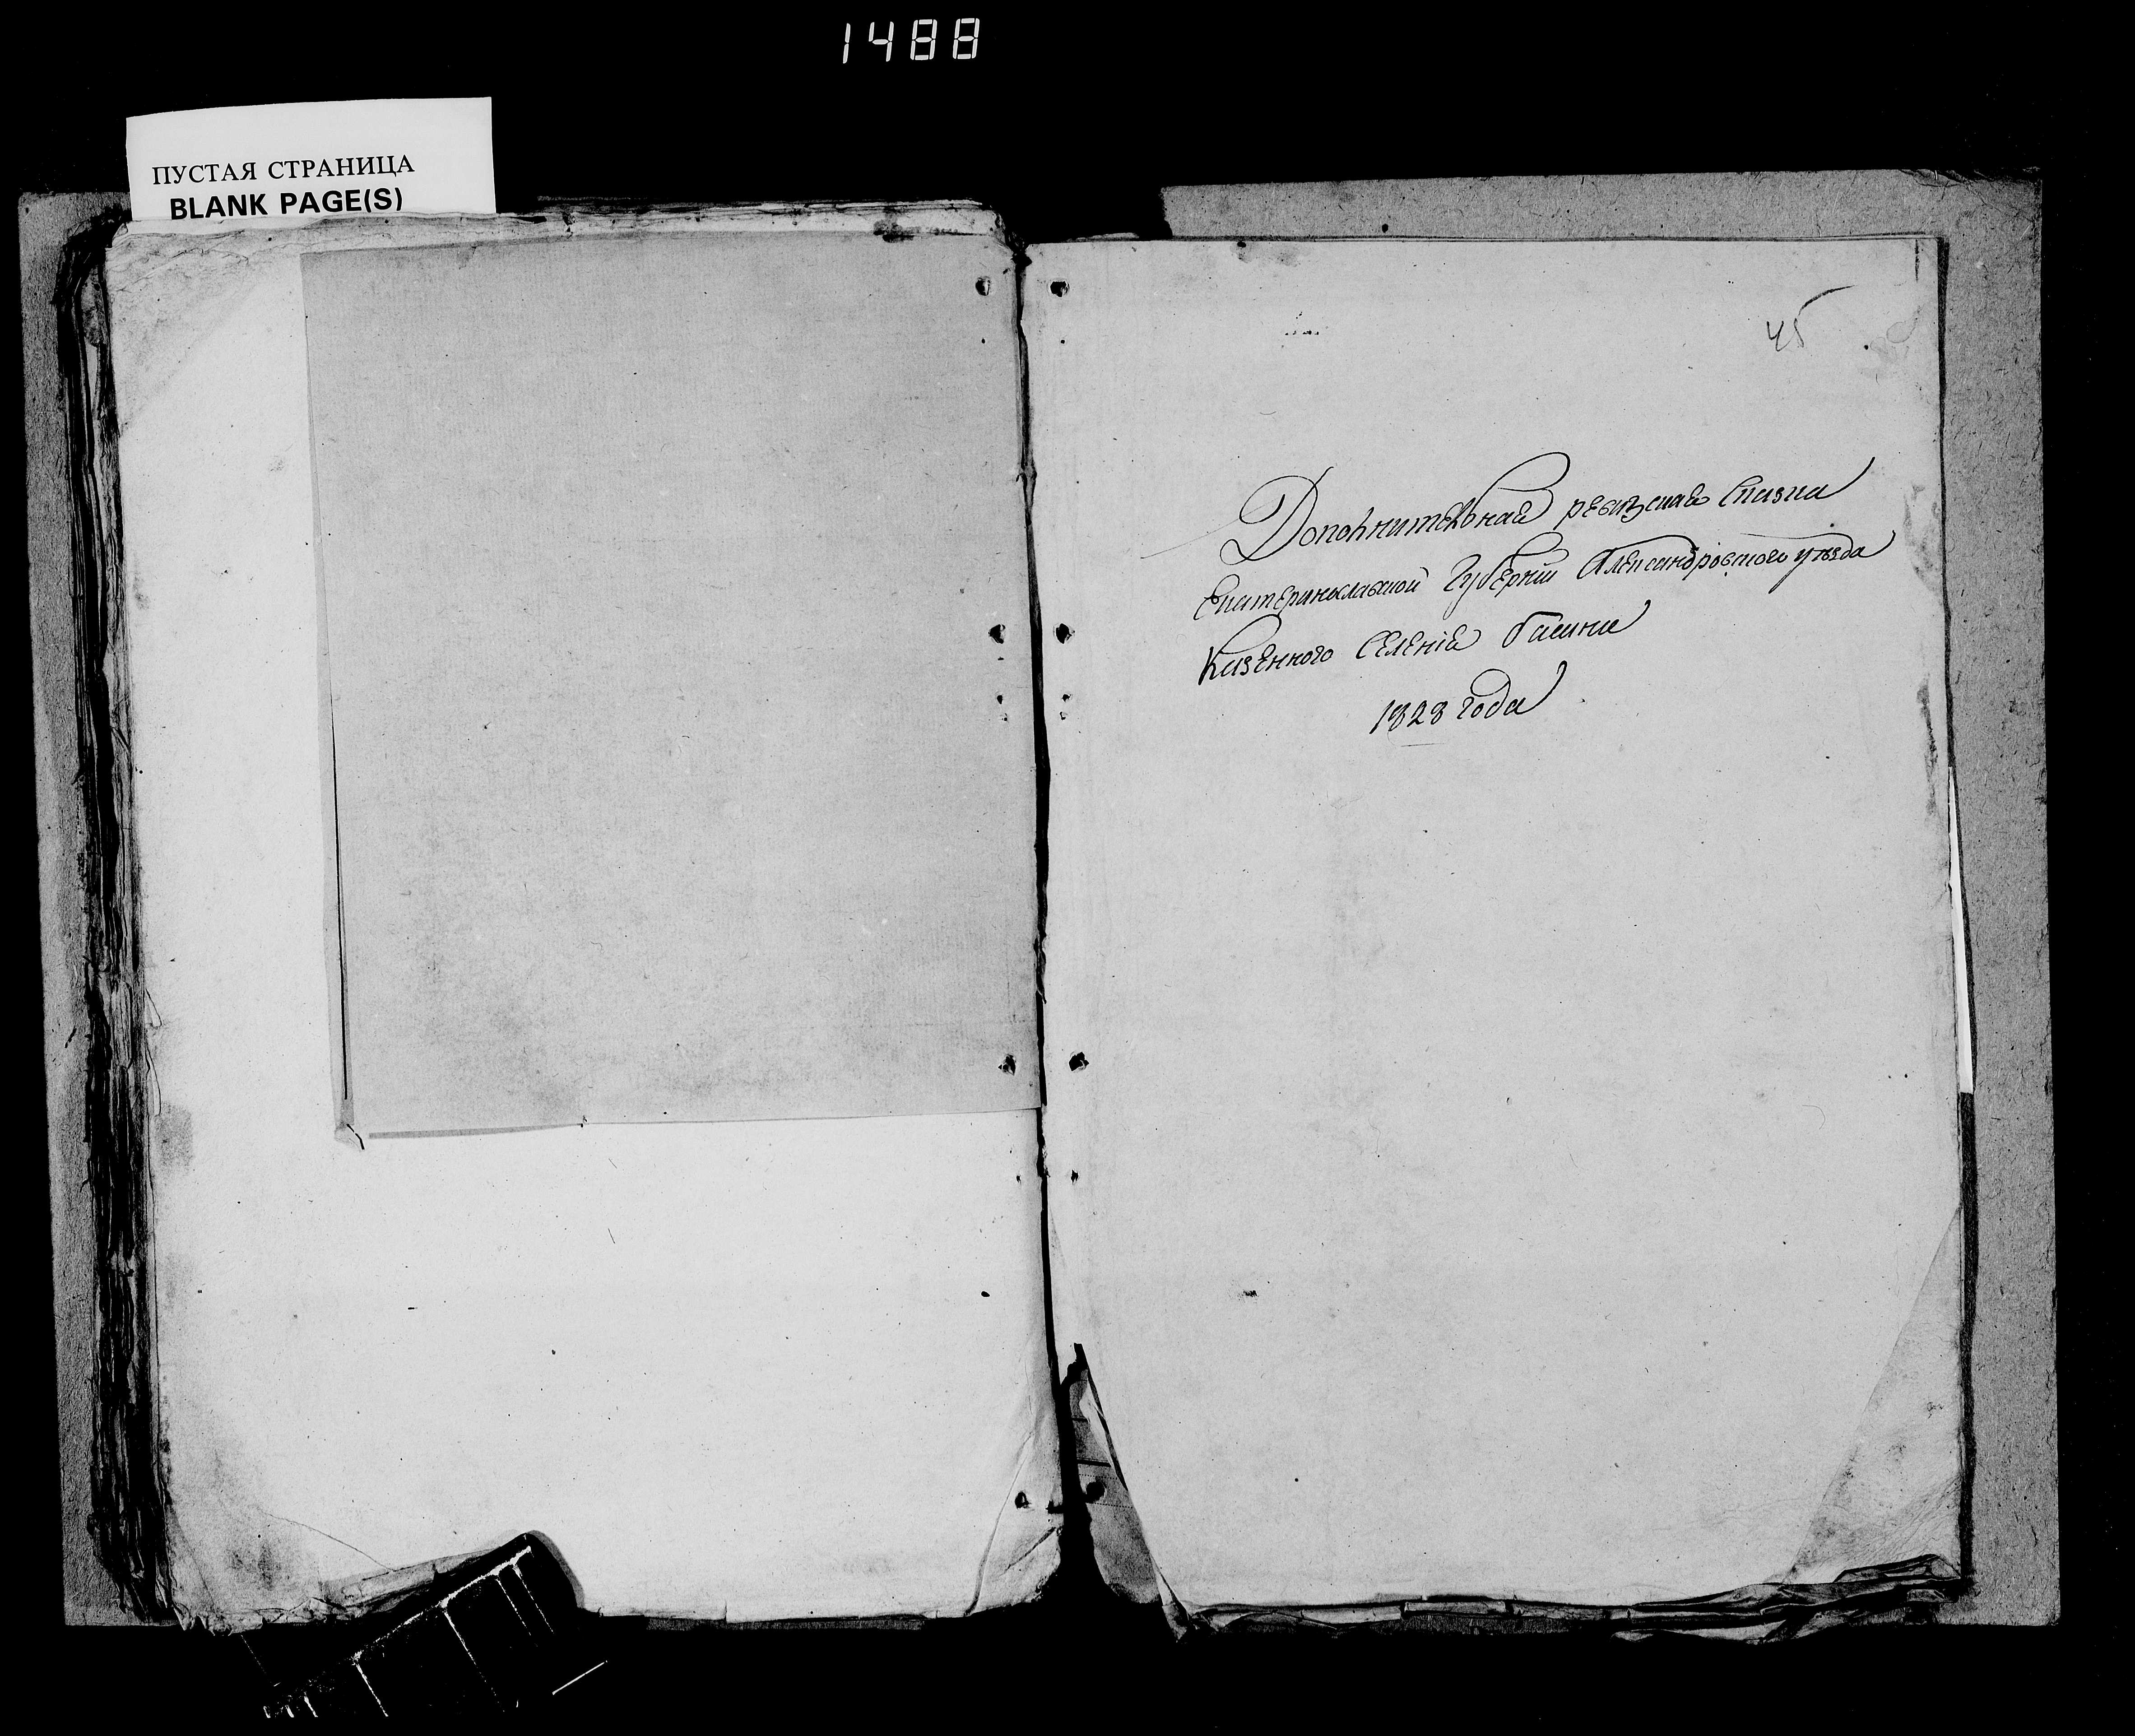 1488
ПУСТАЯ СТРАНИЦА
BLANK PAGE(S)
45
Дополнительная ревизская Сказка
Екатеринославской Губернии Александровского уезда
Казенного Селения
1828 года